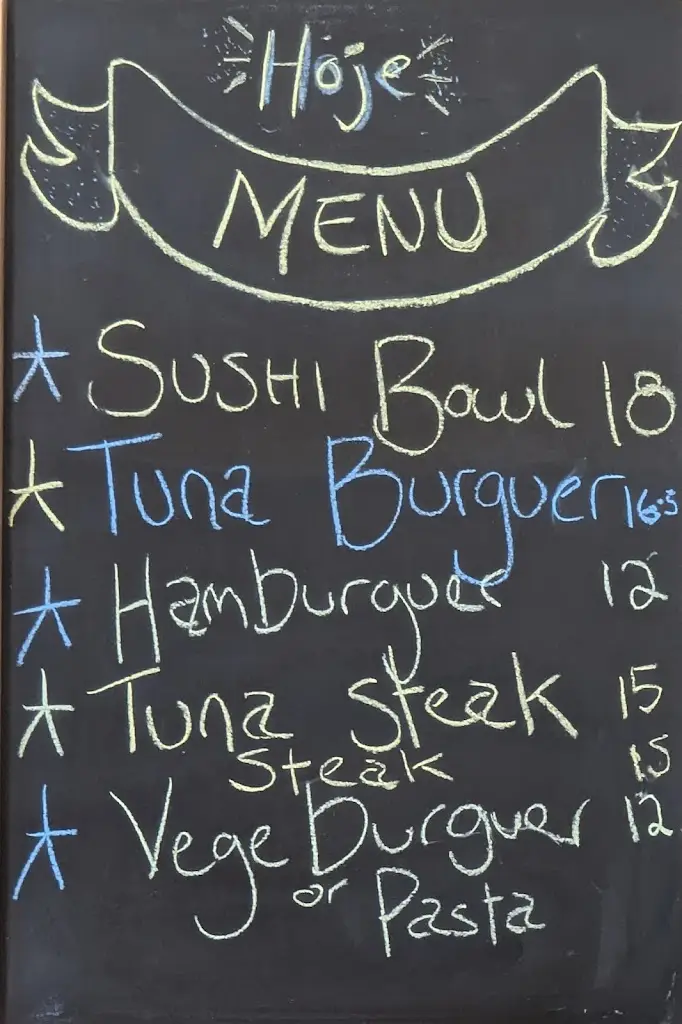 Hoje
MENU
* SUSHI Bowl 18
* Tuna Burguer 16.5
* Hamburguer 12
* Tuna Steak 15
Steak 15
* Vege burguer 12
or Pasta